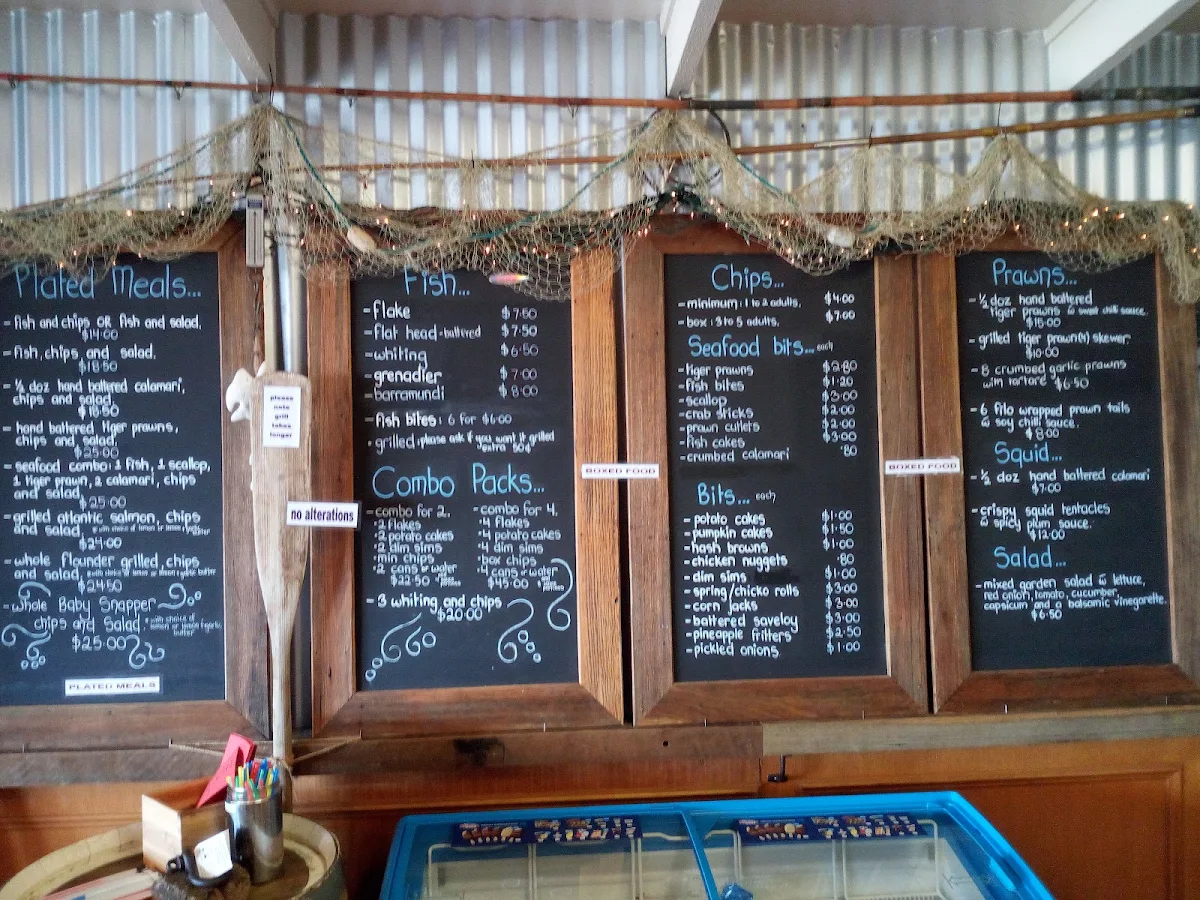 Plated Meals...
- fish and chips OR fish and salad.
$14.00
- fish, chips, and salad.
$18.50
- ½ doz hand battered calamari,
chips and salad.
$18.50
- hand battered tiger prawns,
chips and salad.
$25.00
- seafood combo: 1 fish, 1 scallop,
1 tiger prawn, 2 calamari, chips
and salad.
$25.00
- grilled atlantic salmon, chips
and salad.
$24.00
- whole flounder grilled, chips
and salad.
$24.50
- whole Baby Snapper
chips and Salad. * with choice of
lemon or lemon & garlic
butter
$25.00
PLATED MEALS
please
note
grill
takes
longer
no alterations
Fish...
- flake $7.50
- flat head - battered $7.50
- whiting $6.50
- grenadier $7.00
- barramundi $8.00
- fish bites: 6 for $6.00
- grilled, please ask if you want it grilled
*extra 50¢
Combo Packs...
- combo for 2.
· 2 flakes
· 2 potato cakes
· 2 dim sims
· min chips
· 2 cans or water
$22.50
- combo for 4.
· 4 flakes
· 4 potato cakes
· 4 dim sims
· box chips
· 4 cans or water
$45.00
- 3 whiting and chips
$20.00
BOXED FOOD
Chips...
- minimum: 1 to 2 adults. $4.00
- box: 3 to 5 adults. $7.00
Seafood bits... each
- tiger prawns $2.80
- fish bites $1.20
- scallop $3.00
- crab sticks $2.00
- prawn cutlets $2.00
- fish cakes $3.00
- crumbed calamari .80
Bits... each
- potato cakes $1.00
- pumpkin cakes $1.50
- hash browns $1.00
- chicken nuggets .80
- dim sims $1.00
- spring/chicko rolls $3.00
- corn jacks $3.00
- battered saveloy $3.00
- pineapple fritters $2.50
- pickled onions $1.00
BOXED FOOD
Prawns...
- ½ doz hand battered
tiger prawns w sweet chilli sauce.
$15.00
- grilled tiger prawn(s) skewer.
$10.00
- 8 crumbed garlic prawns
with tartare $6.50
- 6 filo wrapped prawn tails
w soy chilli sauce.
$8.00
Squid...
- ½ doz hand battered calamari
$7.00
- crispy squid tentacles
w spicy plum sauce.
$12.00
Salad...
- mixed garden salad w lettuce,
red onion, tomato, cucumber,
capsicum and a balsamic vinegarette.
$6.50